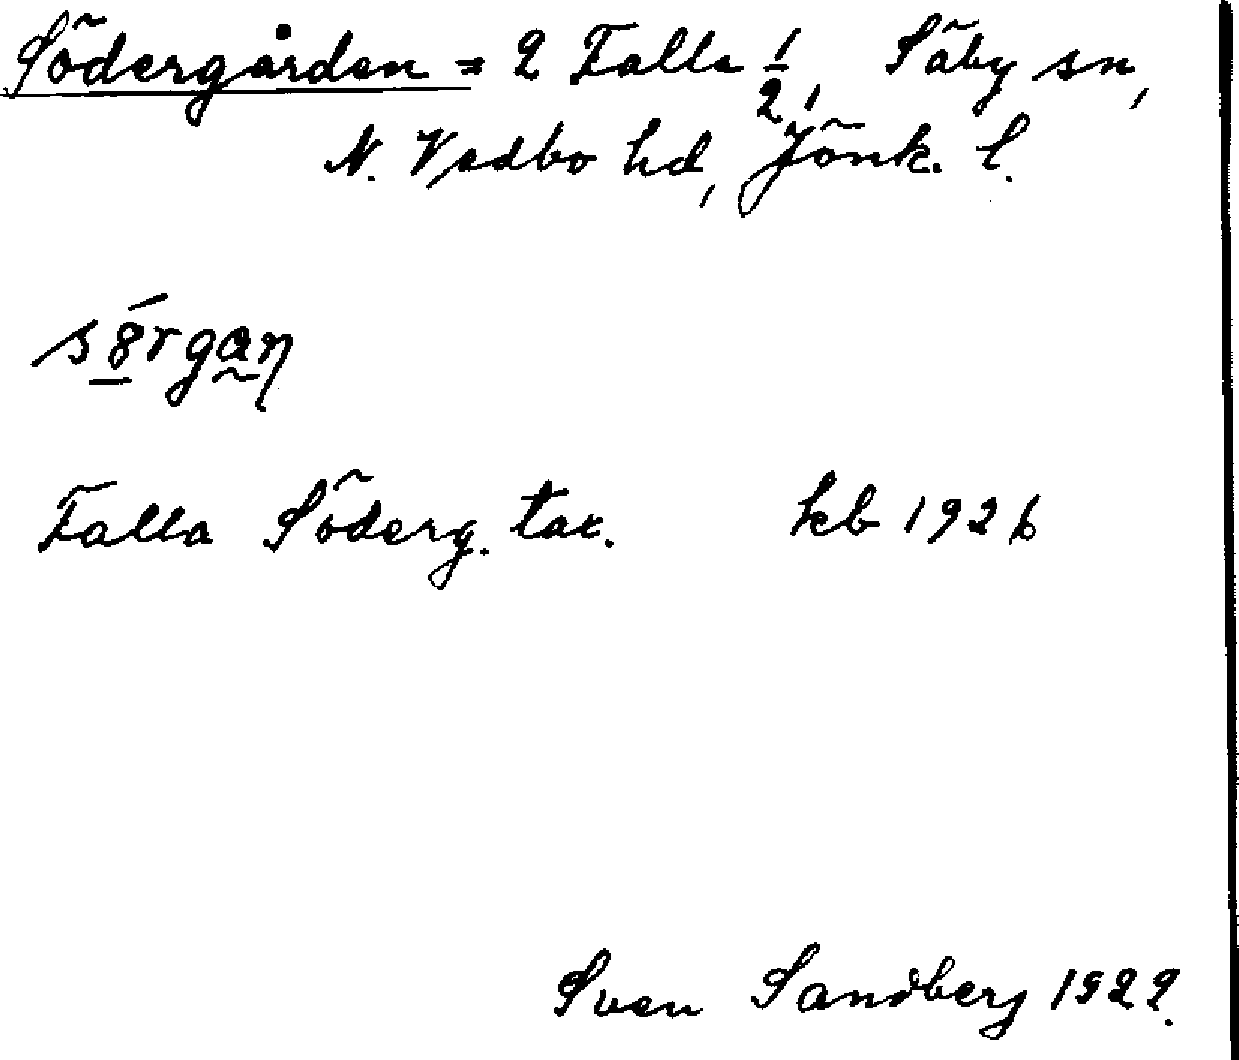 Södergården = 2 Falla 1/2, Säby sn,
N. Vedbo hd, Jönk. l.
sörgaɳ
Falla Söderg. tax. kb 1926
Sven Sandberg 1929.